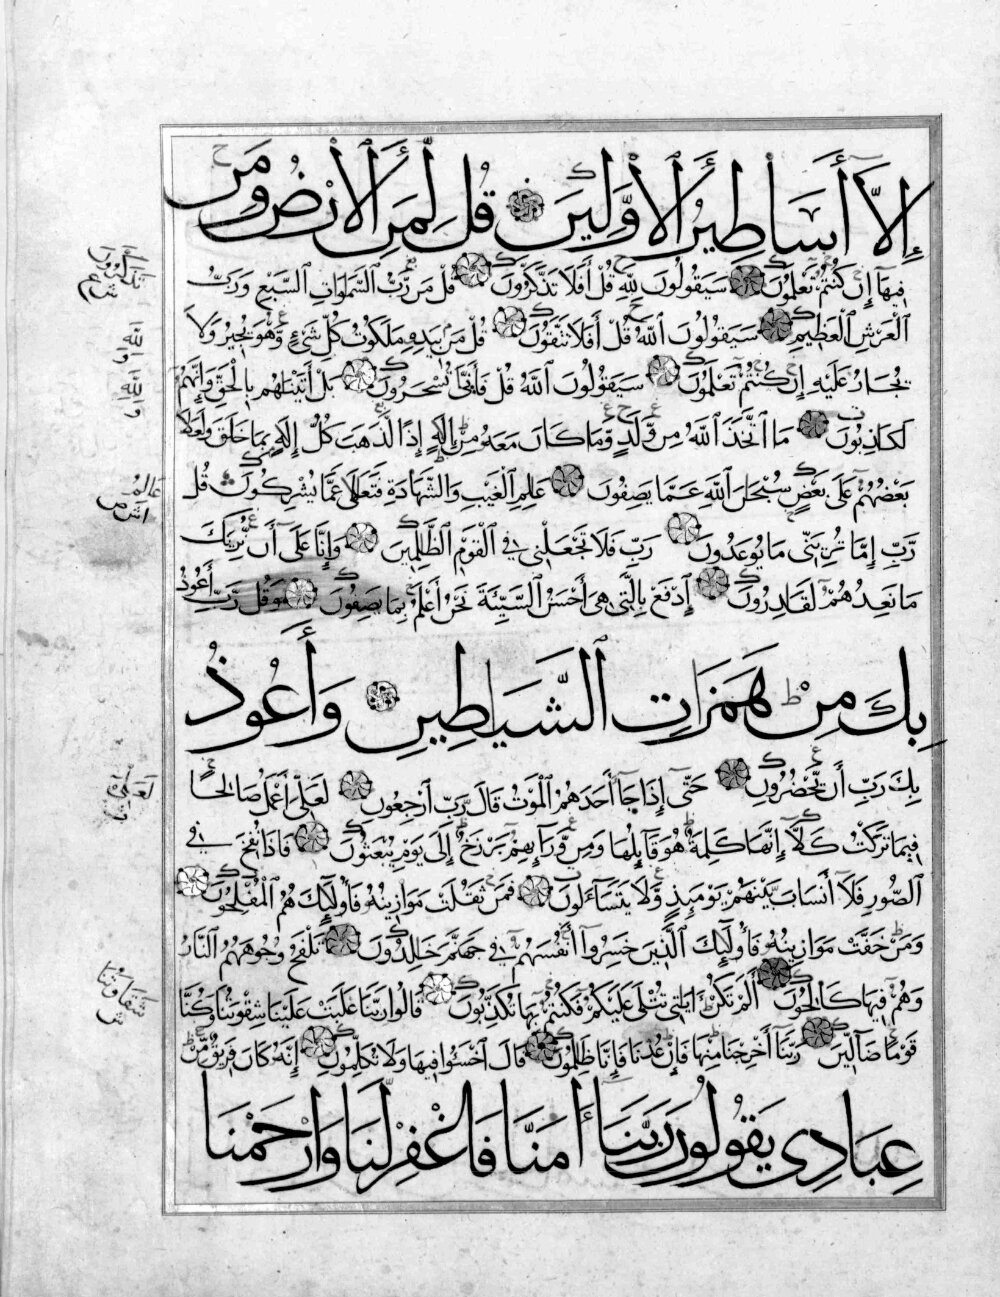 إِلَّا أَسَاطِيرُ الْأَوَّلِينَ قُل لِّمَنِ الْأَرْضُ وَمَن
فِيهَا إِن كُنتُمْ تَعْلَمُونَ سَيَقُولُونَ لِلَّهِ قُلْ أَفَلَا تَذَكَّرُونَ قُلْ مَن رَّبُّ السَّمَاوَاتِ السَّبْعِ وَرَبُّ
الْعَرْشِ الْعَظِيمِ سَيَقُولُونَ اللَّهُ قُلْ أَفَلَا تَتَّقُونَ قُلْ مَن بِيَدِهِ مَلَكُوتُ كُلِّ شَيْءٍ وَهُوَ يُجِيرُ وَلَا
يُجَارُ عَلَيْهِ إِن كُنتُمْ تَعْلَمُونَ سَيَقُولُونَ اللَّهُ قُلْ فَأَنَّى تُسْحَرُونَ بَلْ أَتَيْنَاهُم بِالْحَقِّ وَإِنَّهُمْ
لَكَاذِبُونَ مَا اتَّخَذَ اللَّهُ مِن وَلَدٍ وَمَا كَانَ مَعَهُ مِنْ إِلَهٍ إِذًا لَّذَهَبَ كُلُّ إِلَهٍ بِمَا خَلَقَ وَلَعَلَا
بَعْضُهُمْ عَلَى بَعْضٍ سُبْحَانَ اللَّهِ عَمَّا يَصِفُونَ عَالِمِ الْغَيْبِ وَالشَّهَادَةِ فَتَعَالَى عَمَّا يُشْرِكُونَ قُل
رَّبِّ إِمَّا تُرِيَنِّي مَا يُوعَدُونَ رَبِّ فَلَا تَجْعَلْنِي فِي الْقَوْمِ الظَّالِمِينَ وَإِنَّا عَلَى أَن نُّرِيَكَ
مَا نَعِدُهُمْ لَقَادِرُونَ ادْفَعْ بِالَّتِي هِيَ أَحْسَنُ السَّيِّئَةَ نَحْنُ أَعْلَمُ بِمَا يَصِفُونَ وَقُل رَّبِّ أَعُوذُ
بِكَ مِنْ هَمَزَاتِ الشَّيَاطِينِ وَأَعُوذُ
بِكَ رَبِّ أَن يَحْضُرُونِ حَتَّى إِذَا جَاءَ أَحَدَهُمُ الْمَوْتُ قَالَ رَبِّ ارْجِعُونِ لَعَلِّي أَعْمَلُ صَالِحًا
فِيمَا تَرَكْتُ كَلَّا إِنَّهَا كَلِمَةٌ هُوَ قَائِلُهَا وَمِن وَرَائِهِم بَرْزَخٌ إِلَى يَوْمِ يُبْعَثُونَ فَإِذَا نُفِخَ فِي
الصُّورِ فَلَا أَنسَابَ بَيْنَهُمْ يَوْمَئِذٍ وَلَا يَتَسَاءَلُونَ فَمَن ثَقُلَتْ مَوَازِينُهُ فَأُولَئِكَ هُمُ الْمُفْلِحُونَ
وَمَنْ خَفَّتْ مَوَازِينُهُ فَأُولَئِكَ الَّذِينَ خَسِرُوا أَنفُسَهُمْ فِي جَهَنَّمَ خَالِدُونَ تَلْفَحُ وُجُوهَهُمُ النَّارُ
وَهُمْ فِيهَا كَالِحُونَ أَلَمْ تَكُنْ آيَاتِي تُتْلَى عَلَيْكُمْ فَكُنتُم بِهَا تُكَذِّبُونَ قَالُوا رَبَّنَا غَلَبَتْ عَلَيْنَا شِقْوَتُنَا وَكُنَّا
قَوْمًا ضَالِّينَ رَبَّنَا أَخْرِجْنَا مِنْهَا فَإِنْ عُدْنَا فَإِنَّا ظَالِمُونَ قَالَ اخْسَئُوا فِيهَا وَلَا تُكَلِّمُونِ إِنَّهُ كَانَ فَرِيقٌ مِّنْ
عِبَادِي يَقُولُونَ رَبَّنَا آمَنَّا فَاغْفِرْ لَنَا وَارْحَمْنَا
تذكرون
الله
الله
عالم
لعلي
شقاوتنا